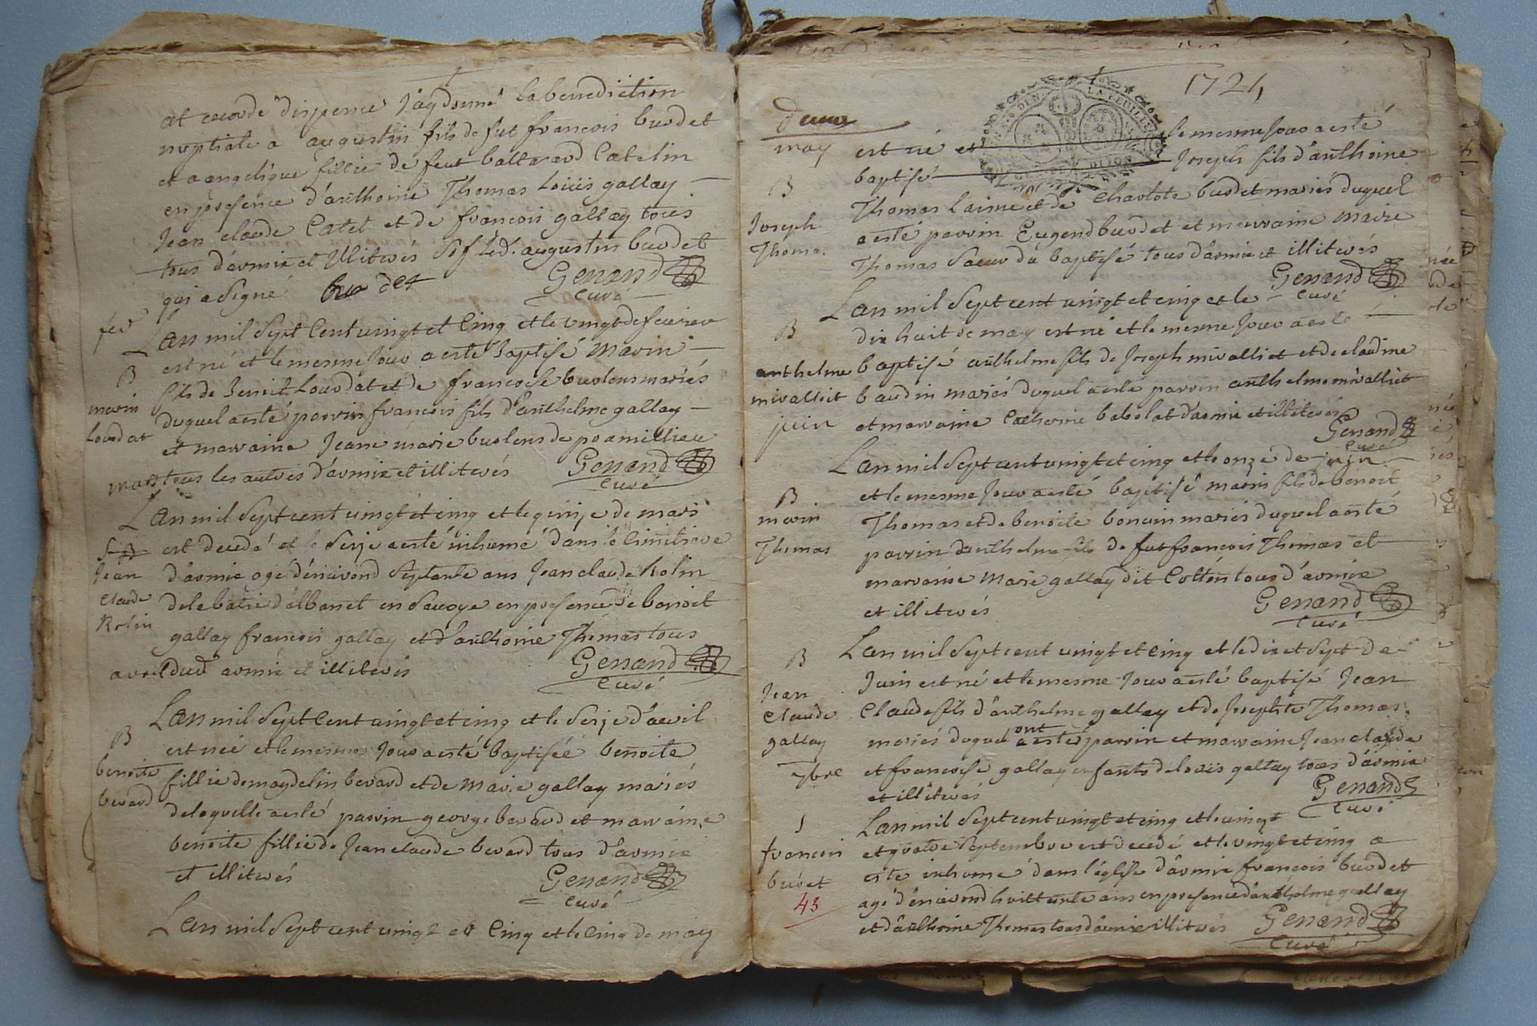 et acordé dispence j'ay donné la benediction
nuptiale a augustin fils de fut francois burdet
et a angelique fillie de feut baltazard Catelin
en presence d'anthoine Thomas Loüis gallay
Jean claude Catel et de francois gallay tous
tous d'armix et illiterés sof led. augustin burdet
qui a signe burdet Genand
curé
fév
Lan mil sept cent vingt et cinq et le vingt de fevrier
est né et le mesme jour a esté baptisé marin
B
marin
Lourdat
fils de benoit Lourdat et de francoise burlens mariés
duquel a esté parrin francois fils d'anthelme gallay
et marraine Jeane marie burlens de poamillieu
mars tous les autres d'armix et illiterés Genand
curé
Lan mil sept cent vingt et cinq et le quinze de mars
est decedé et le seize a esté inhumé dans le cimitiere
Jean
claude
Rolin
d'armix agé d'environ septante ans Jean claude Rolin
de la batie d'albanet en Savoye en presence de benoit
gallay francois gallay et d'anthoine Thomas tous
avril dud armix et illiterés Genand
curé
Lan mil sept cent vingt et cinq et le seize d'avril
B
benoite
berard
est née et le mesme jour a esté baptisée benoite
fillie de maydelin berard et de marie gallay mariés
de laquelle a esté parrin george berard et marraine
benoite fillie de Jean claude berard tous d'armix
et illiterés Genand
curé
Lan mil sept cent vingt et cinq et le cinq de may
1724
may
B
Joseph
Thomas
est né et le mesme jour a esté
baptisé Joseph fils d'anthoine
Thomas Laine et de Charlote burdet mariés duquel
a esté parrin Eugend burdet et marraine marie
Thomas soeur du baptisé tous d'armix et illiterés
Genand
curé
Lan mil sept cent vingt et cinq et le
B
anthelme
mivalliet
juin
dix huit de may est né et le mesme jour a esté
baptisé anthelme fils de Joseph mivalliet et de claudine
baudin mariés duquel a esté parrin anthelme mivalliet
et marraine Catherine babolat d'armix et illiterés
Genand
curé
Lan mil sept cent vingt et cinq et le onze de juin
B
marin
Thomas
et le mesme jour a esté baptisé marin fils de benoit
Thomas et de benoite bonvin mariés duquel a esté
parrin anthelme fils de fut francois Thomas et
marraine marie gallay dit Cotton tous d'armix
et illiterés Genand
curé
Lan mil sept cent vingt et cinq et le dix et sept de
B
Jean
claude
gallay
7bre
Juin est né et le mesme jour a esté baptisé Jean
Claude fils d'anthelme gallay et de Josephte Thomas
mariés duquel ont esté parrin et marraine Jean claude
et francoise gallay enfants de louis gallay tous d'armix
et illiterés Genand
curé
Lan mil sept cent vingt et cinq et le vingt
S
francois
burdet
43
et quatre septembre est decedé et le vingt et cinq a
esté inhumé dans l'église d'armix francois burdet
agé d'environ huittante ans en presence d'anthelme gallay
et d'anthoine Thomas tous d'armix illiterés Genand
curé